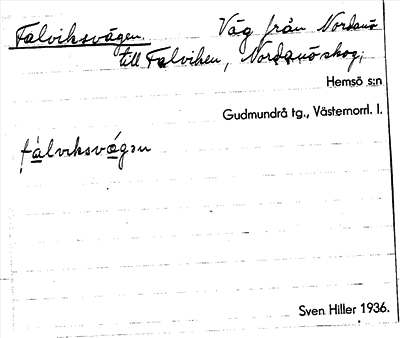 Falviksvägen. Väg från Nordanö
till Falviken, Nordanöskog,
Hemsö s:n
Gudmundrå tg., Västernorrl. l.
fàlviksvǽgən
Sven Hiller 1936.